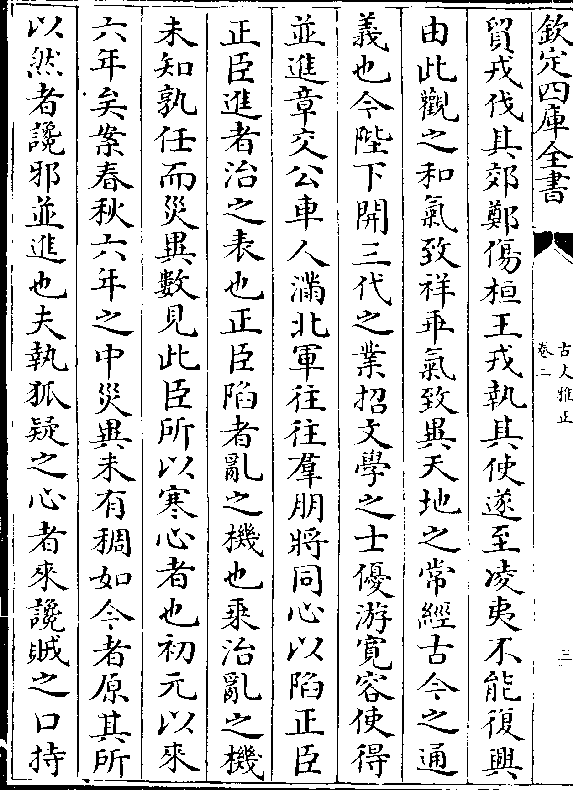 欽定四庫全書
古文雅正
卷二
三
貿戎伐其郊鄭傷桓王戎執其使遂至凌夷不能復興
由此觀之和氣致祥乖氣致異天地之常經古今之通
義也今陛下開三代之業招文學之士優游寛容使得
並進章交公車人滿北軍往往羣朋將同心以陷正臣
正臣進者治之表也正臣陷者亂之機也乗治亂之機
未知孰任而災異數見此臣所以寒心者也初元以來
六年矣案春秋六年之中災異未有稠如今者原其所
以然者讒邪並進也夫執狐疑之心者來讒賊之口持